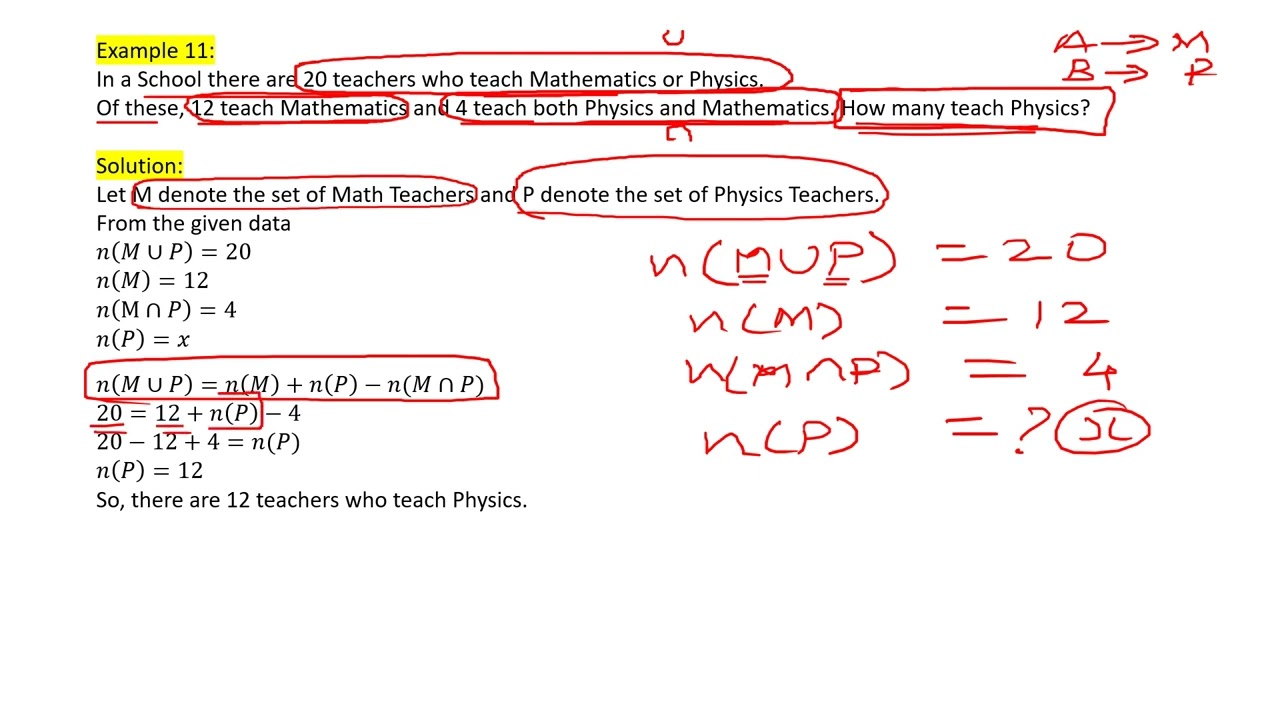 Example 11:
In a School there are 20 teachers who teach Mathematics or Physics.
Of these, 12 teach Mathematics and 4 teach both Physics and Mathematics. How many teach Physics?
∪
∩
A → M
B → P
Solution:
Let M denote the set of Math Teachers and P denote the set of Physics Teachers.
From the given data
n(M ∪ P) = 20
n(M) = 12
n(M ∩ P) = 4
n(P) = x
n(M ∪ P) = n(M) + n(P) − n(M ∩ P)
20 = 12 + n(P) − 4
20 − 12 + 4 = n(P)
n(P) = 12
So, there are 12 teachers who teach Physics.
n(M∪P) = 20
n(M) = 12
n(M∩P) = 4
n(P) = ? x